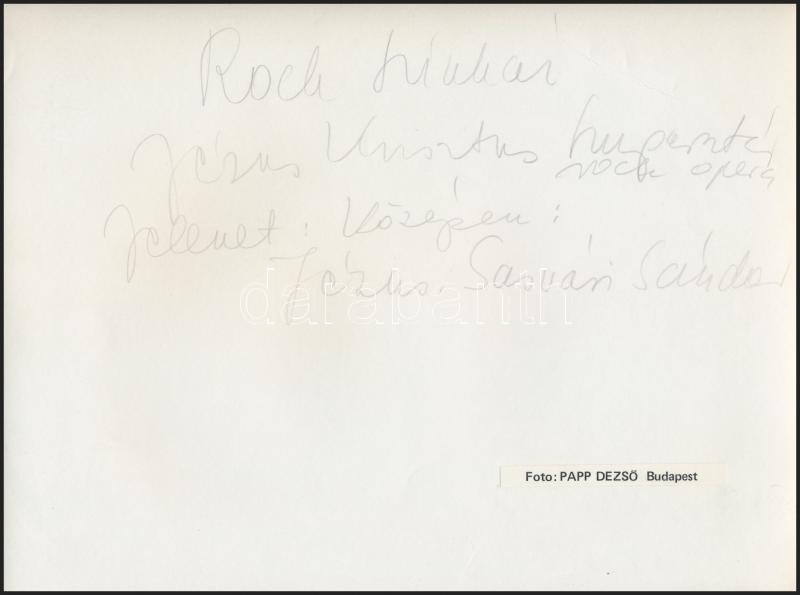 Rock színház
Jézus Krisztus szupersztár
rock opera
Jelenet: Középen:
Jézus: Sasvári Sándor
darabanth
Foto: PAPP DEZSŐ Budapest